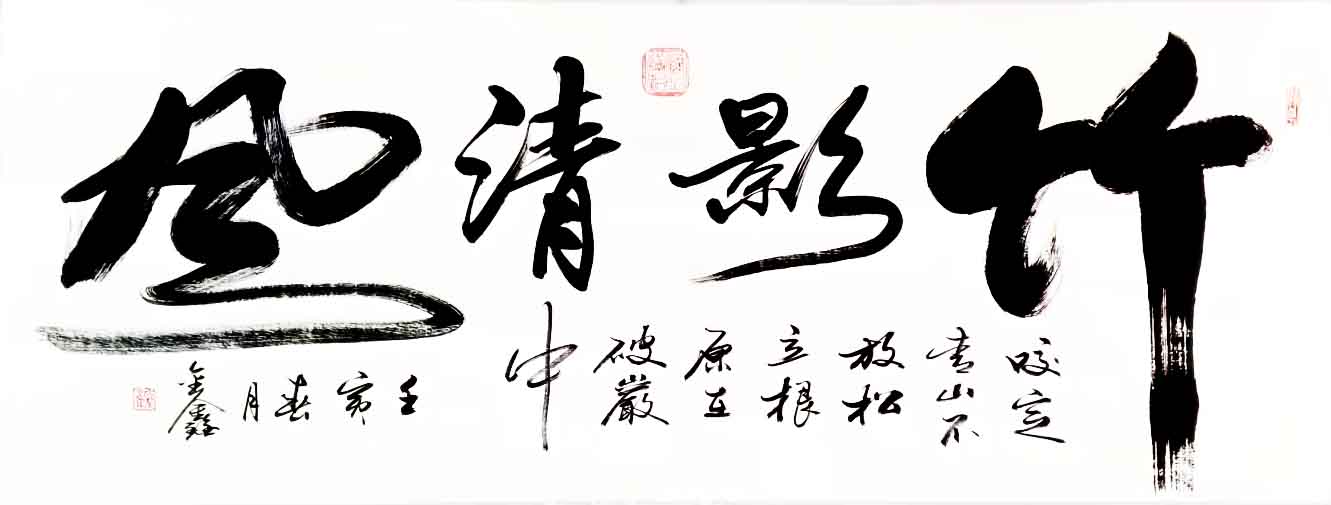 竹影清风
咬定
青山不
放松
立根
原在
破巖
中
壬寅春月
金鑫